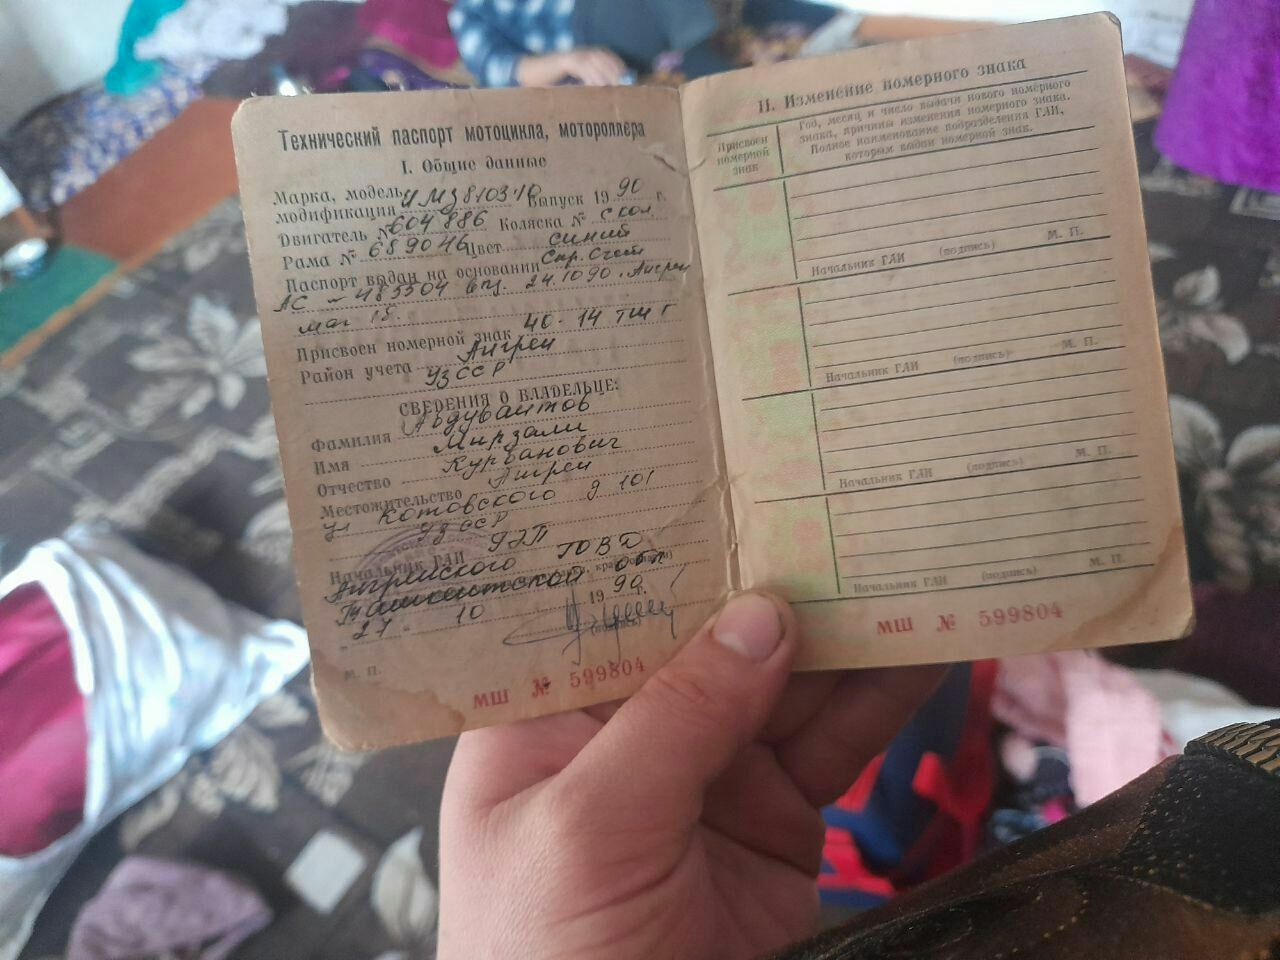 Технический паспорт мотоцикла, мотороллера
I. Общие данные
Марка, модель
модификация ИМЗ 810310 Выпуск 19 90 г.
Двигатель № 604886 Коляска № с кол.
Рама № 689046 Цвет синий
Паспорт выдан на основании Спр. Счет
АС - 483304 выд. 24.10 90. Ангрен
маг 15.
Присвоен номерной знак 40-14 ТШГ
Район учета Ангрен
УзССР
СВЕДЕНИЯ О ВЛАДЕЛЬЦЕ:
Фамилия Абдуваитов
Имя Мирзали
Отчество Курбанович
Местожительство Ангрен
ул Котовского д 101
УзССР
Начальник ГАИ
Ангренского ГОВД
Ташкентской обл
27 - 10 19 90 г.
(подпись)
М. П.
МШ № 599804
II. Изменение номерного знака
Присвоен номерной знак
Год, месяц и число выдачи нового номерного
знака, причины изменения номерного знака.
Полное наименование подразделения ГАИ,
которым выдан номерной знак.
Начальник ГАИ (подпись) М. П.
Начальник ГАИ (подпись) М. П.
Начальник ГАИ (подпись) М. П.
Начальник ГАИ (подпись) М. П.
МШ № 599804